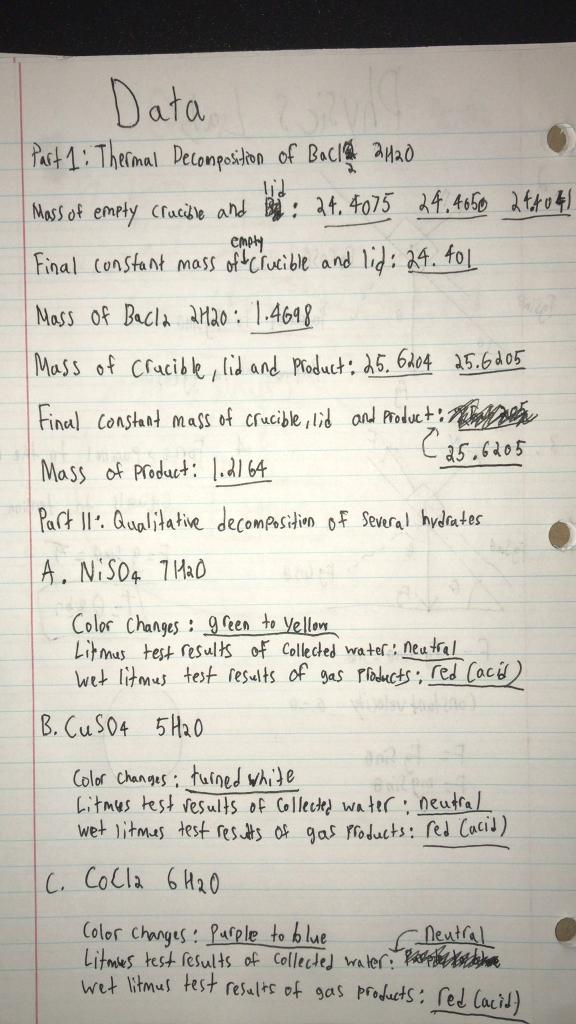 Data
Part 1: Thermal Decomposition of BaCl2 2H2O
Mass of empty crucible and lid: 24.4075 24.4050 24.4041
Final constant mass of empty crucible and lid: 24.401
Mass of BaCl2 2H2O: 1.4698
Mass of crucible, lid and product: 25.6204 25.6205
Final constant mass of crucible, lid and product:
25.6205
Mass of product: 1.2164
Part II: Qualitative decomposition of several hydrates
A. NiSO4 7H2O
Color changes: green to yellow
Litmus test results of collected water: neutral
Wet litmus test results of gas products: red (acid)
B. CuSO4 5H2O
Color changes: turned white
Litmus test results of collected water: neutral
wet litmus test results of gas products: red (acid)
C. CoCl2 6H2O
Color changes: Purple to blue
Litmus test results of collected water: Neutral
wet litmus test results of gas products: red (acid)